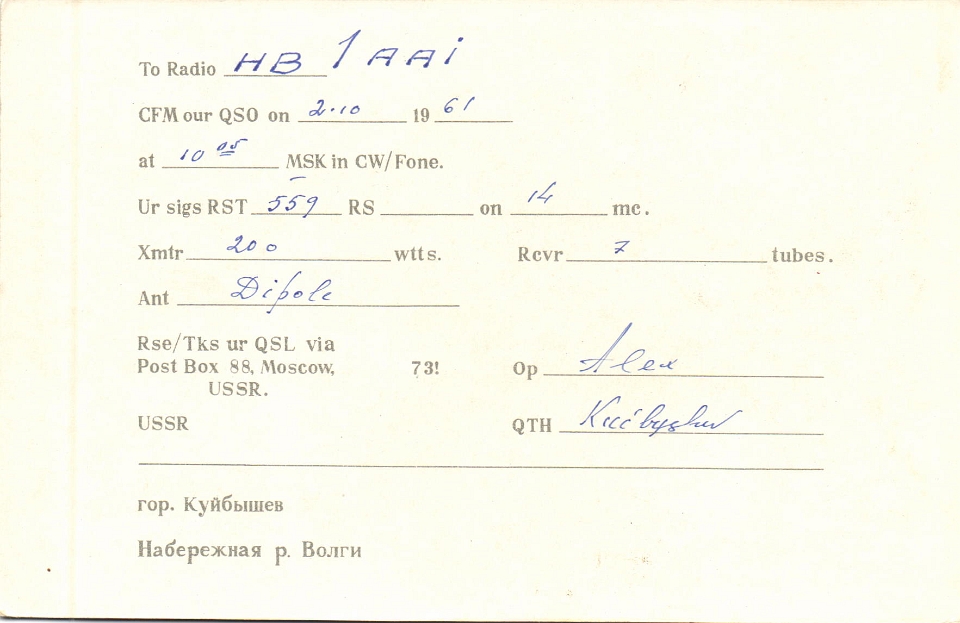 To Radio HB 1 AAi
CFM our QSO on 2.10 19 61
at 10 05 MSK in CW/Fone.
Ur sigs RST 559 RS on 14 mc.
Xmtr 200 wtts. Rcvr 7 tubes.
Ant Dipole
Rse/Tks ur QSL via
Post Box 88, Moscow, 73! Op Alex
USSR.
USSR QTH Kuibyshev
гор. Куйбышев
Набережная р. Волги